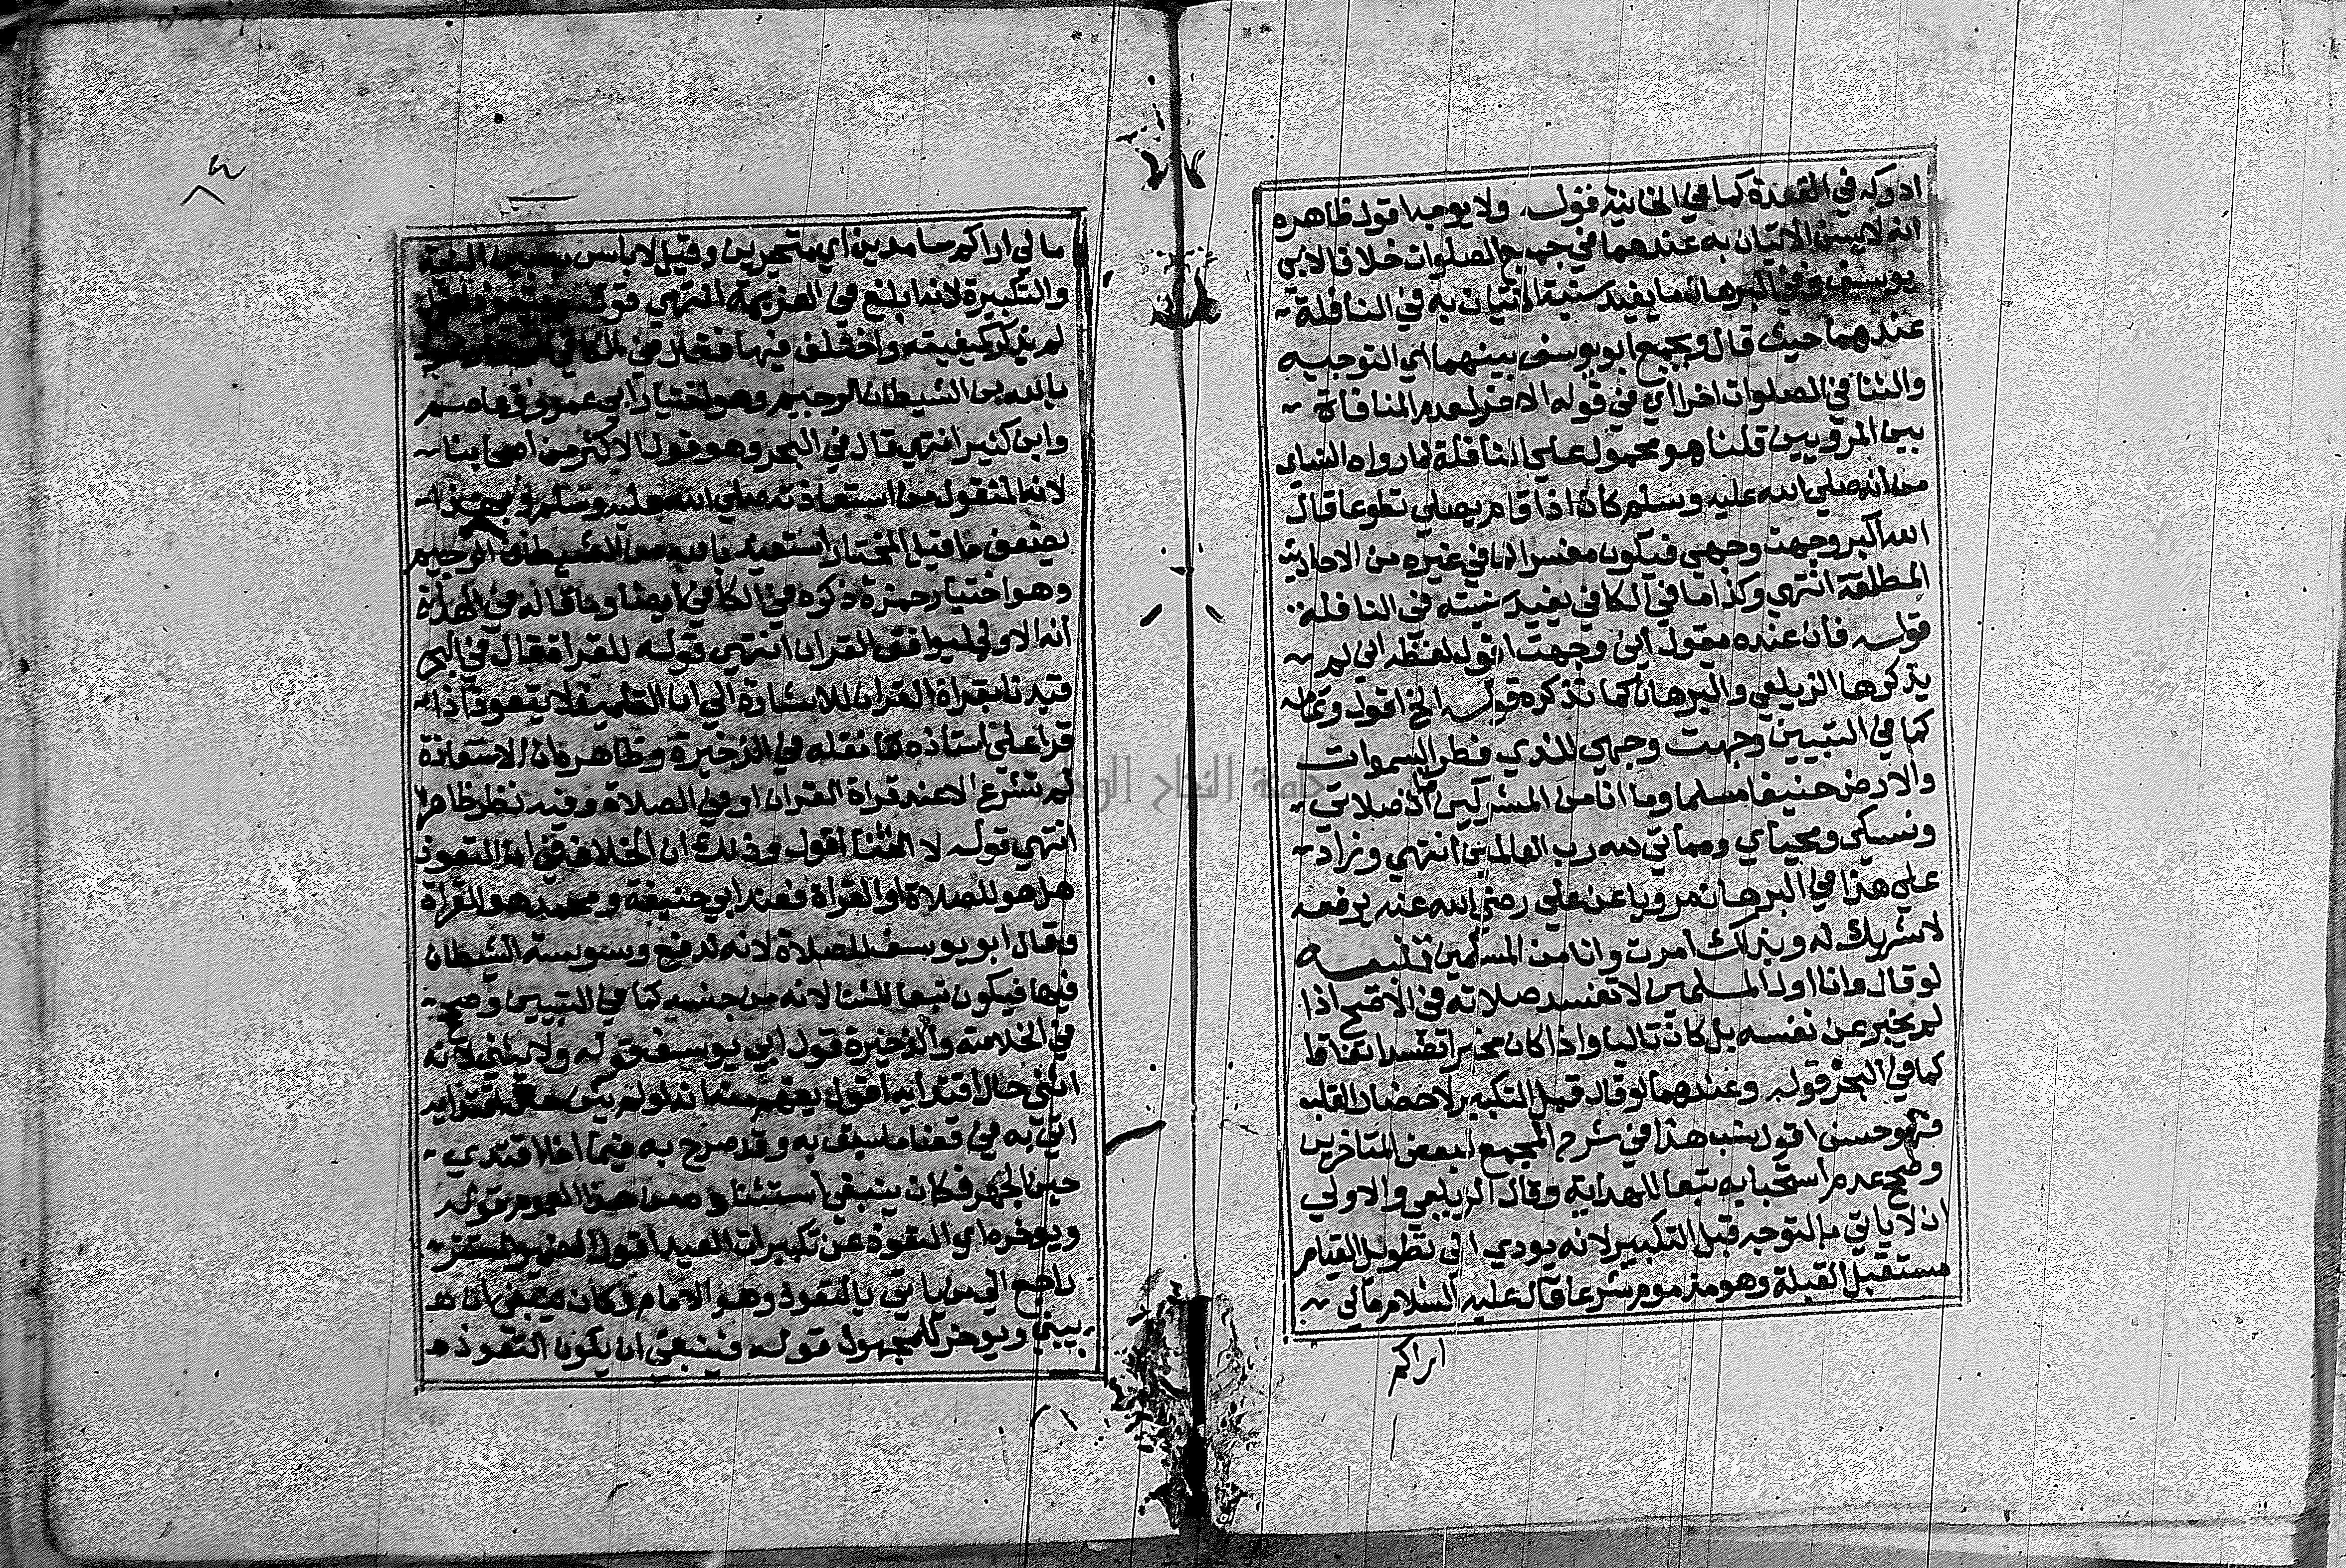 ادركه في القعدة كما في الخانية قوله ولا يوجه اقول ظاهره
انه لايسن الاتيان به عندهما في جميع الصلوات خلافا لابي
يوسف وفي البرهان ما يفيد سنية الاتيان به في النافلة
عندهما حيث قال ويجمع ابو يوسف بينهما اي التوجيه
والثنا في الصلوات اخرا اي في قوله الاخر لعدم المنافاة
بين المرويين قلنا هو محمول علي النافلة لما رواه النساي
من انه صلي الله عليه وسلم كان اذا قام يصلي تطوعا قال
الله اكبر وجهت وجهي فيكون مفسرا لما في غيره من الاحاديث
المطلقة انتهي وكذا ما في الكافي يفيد سنيته في النافلة
قوله فان عنده يقول اني وجهت اقول لفظه اني لم
يذكرها الزيلعي والبرهان كما نذكره قوله الخ اقول وتمامه
كما في التبيين وجهت وجهي للذي فطر السموات
والارض حنيفا مسلما وما انا من المشركين ان صلاتي
ونسكي ومحياي ومماتي لله رب العالمين انتهي وزاد
علي هذا في البرهان مرويا عن علي رضي الله عنه يرفعه
لا شريك له وبذلك امرت وانا من المسلمين تنبيه
لو قال وانا اول المسلمين لا تفسد صلاته في الاصح اذا
لم يخبر عن نفسه بل كان تاليا واذا كان مخبرا تفسد اتفاقا
كما في البحر قوله وعندهما لو قال قبل التكبير لاحضار القلب
فهو حسن اقول نسب هذا في شرح المجمع لبعض المتاخرين
وصحح عدم استحبابه تبعا للهداية وقال الزيلعي والاولي
ان لا ياتي بالتوجه قبل التكبير لانه يودي الي تطويل القيام
مستقبل القبلة وهو مذموم شرعا قال عليه السلام مالي
اراكم
مالي اراكم سامدين اي متحيرين وقيل لا باس به بين النية
والتكبيرة لانه ابلغ في العزيمة انتهي قوله اقول
لم يذكر كيفيته واختلف فيها فقال في الكافي
بالله من الشيطان الرجيم وهو اختيار ابي عمرو وعاصم
وابن كثير انتهي قال في البحر وهو قول الاكثر من اصحابنا
لانه المنقول من استعاذته صلي الله عليه وسلم وبهذا
يضعف ما قيل المختار استعيذ بالله من الشيطان الرجيم
وهو اختيار حمزة ذكره في الكافي ايضا وما قاله في الهداية
انه الاولي ليوافق القران انتهي قوله للقراة قال في البحر
قيدنا بقراة القران للاشارة الي ان التلميذ لا يتعوذ اذا
قرا علي استاذه كما نقله في الذخيرة وظاهره ان الاستعاذة
لم تشرع الا عند قراة القران او في الصلاة وفيه نظر ظاهر
انتهي قوله لا الثنا اقول وذلك ان الخلاف في ان التعوذ
هل هو للصلاة او القراة فعند ابي حنيفة ومحمد هو للقراة
وقال ابو يوسف للصلاة لانه لدفع وسوسة الشيطان
فيها فيكون تبعا للثنا لانه من جنسه كما في التبيين وصحح
في الخلاصة والذخيرة قول ابي يوسف قوله ولا يثني لانه
اثني حال اقتدايه اقول يفهم منه انه لو لم يثن حال اقتدايه
اتي به في قضا ما سبق به وقد صرح به فيما اذا اقتدي
حين الجهر فكان ينبغي استثناوه من هذا العموم قوله
ويوخره اي التعوذ عن تكبيرات العيد اقول الضمير المستتر
راجع الي من ياتي بالتعوذ وهو الامام وكان ينبغي ان
يبني ويوخر للمجهول قوله فينبغي ان يكون التعوذ